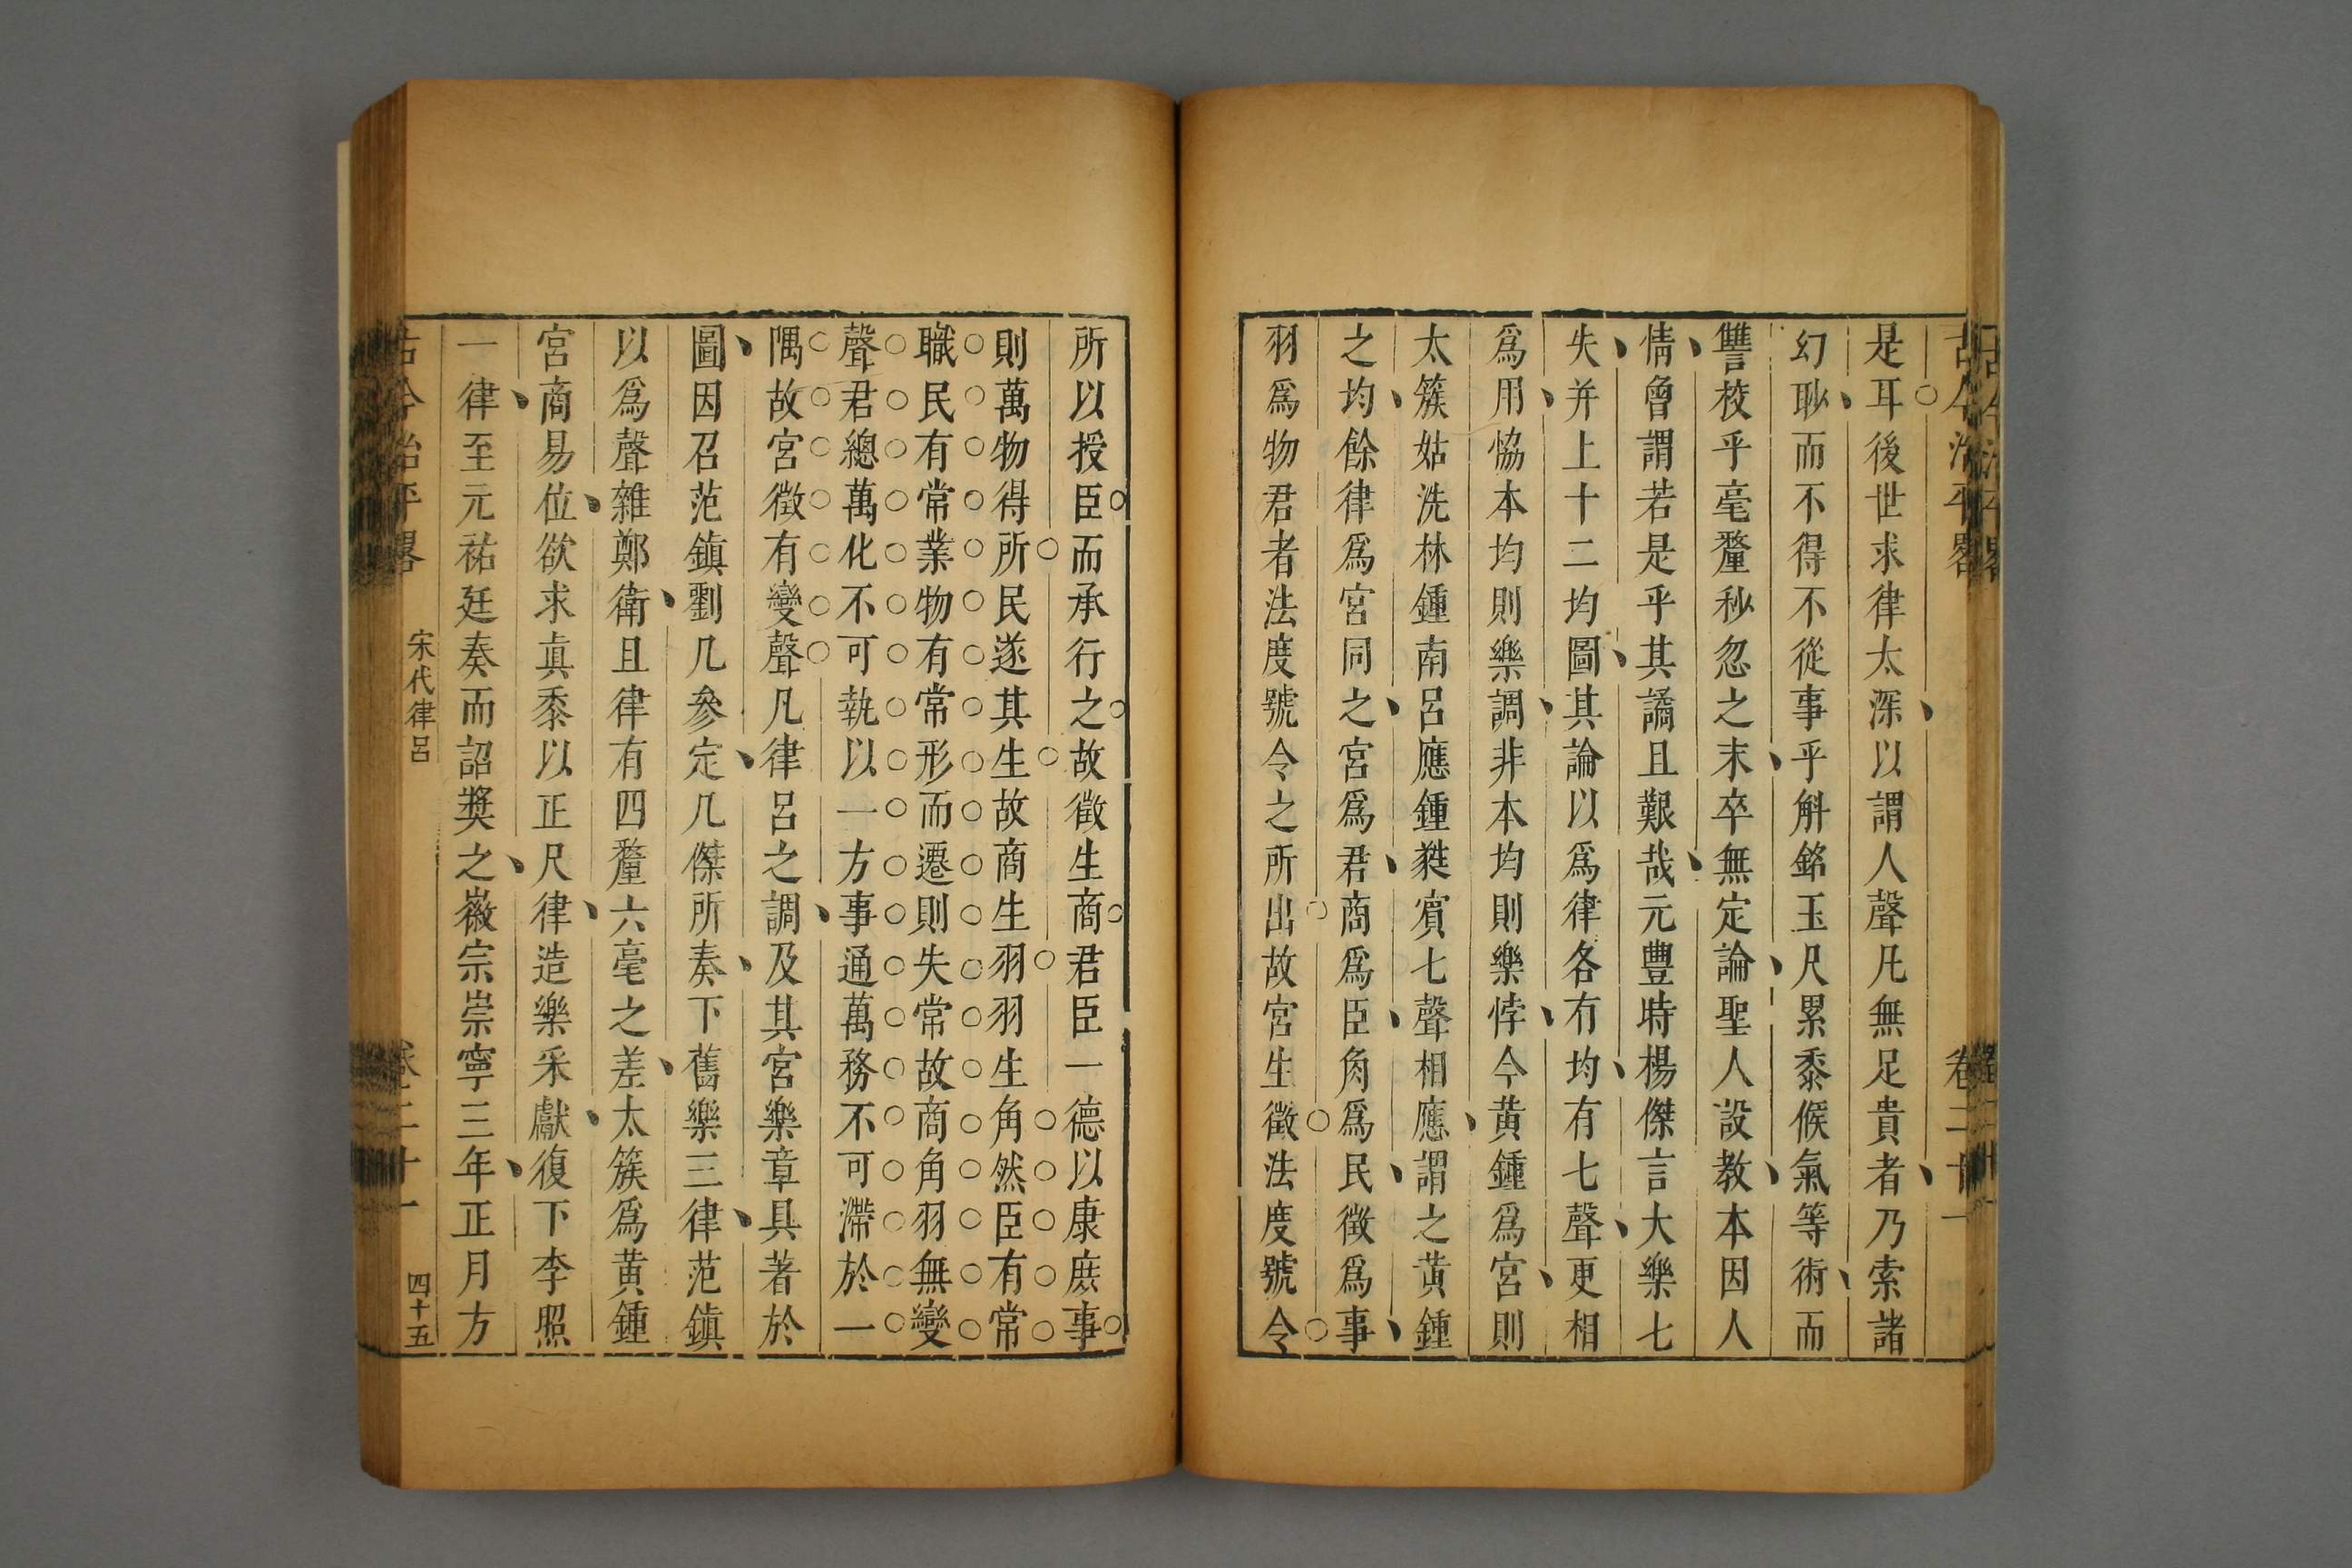 古今治平畧 卷二十一
是耳後世求律太深以謂人聲凡無足貴者乃索諸
幻眇而不得不從事乎斛銘玉尺累黍候氣等術而
讐校乎毫釐秒忽之末卒無定論聖人設教本因人
情曾謂若是乎其譎且艱哉元豐時楊傑言大樂七
失并上十二均圖其論以爲律各有均有七聲更相
爲用恊本均則樂調非本均則樂悖今黄鍾爲宮則
太簇姑洗林鍾南呂應鍾蕤賔七聲相應謂之黄鍾
之均餘律爲宮同之宮爲君商爲臣角爲民徵爲事
羽爲物君者法度號令之所出故宮生徵法度號令
所以授臣而承行之故徵生商君臣一德以康庶事
則萬物得所民遂其生故商生羽羽生角然臣有常
職民有常業物有常形而遷則失常故商角羽無變
聲君總萬化不可執以一方事通萬務不可滯於一
隅故宮徵有變聲凡律呂之調及其宮樂章具著於
圖因召范鎮劉几參定几傑所奏下舊樂三律范鎮
以爲聲雜鄭衛且律有四釐六毫之差太簇爲黄鍾
宮商易位欲求眞黍以正尺律造樂釆獻復下李照
一律至元祐廷奏而詔奬之徽宗崇寧三年正月方
古今治平畧 宋代律呂 卷二十一 四十五